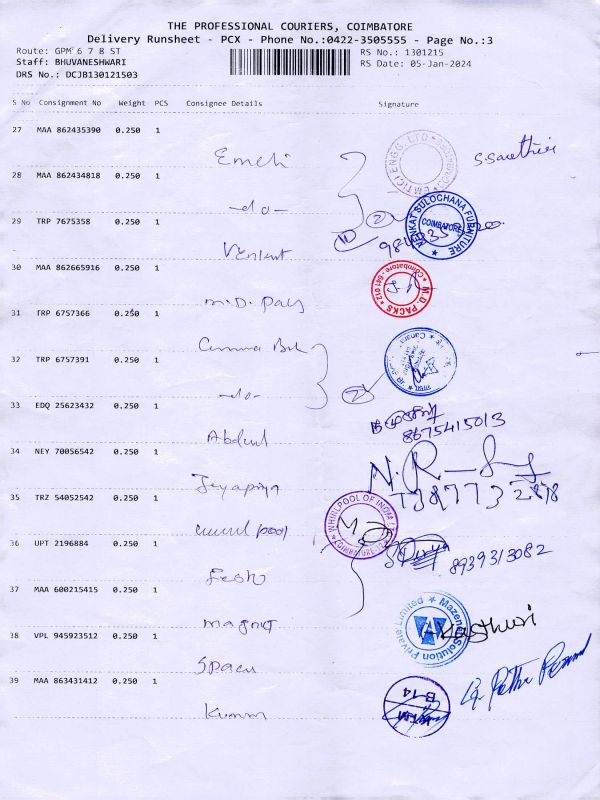 THE PROFESSIONAL COURIERS, COIMBATORE
Delivery Runsheet - PCX - Phone No.:0422-3505555 - Page No.:3
Route: GPM 6 7 8 ST
RS No.: 1301215
Staff: BHUVANESHWARI
RS Date: 05-Jan-2024
DRS No.: DCJB130121503
S No Consignment No Weight PCS Consignee Details Signature
27 MAA 862435390 0.250 1
28 MAA 862434818 0.250 1
-do-
VENKAT SULOCHANA FURNITURE
COIMBATORE
29 TRP 7675358 0.250 1
Venkat
30 MAA 862665916 0.250 1
M.D. Pacs
M.D. PACKS
31 TRP 6757366 0.250 1
32 TRP 6757391 0.250 1
-do-
33 EDQ 25623432 0.250 1
Abdul
8675415013
34 NEY 70056542 0.250 1
N.R
35 TRZ 54052542 0.250 1
WHIRLPOOL OF INDIA
36 UPT 2196884 0.250 1
8939313082
37 MAA 600215415 0.250 1
Magnet
Mazenet Solution Private Limited
Kasthuri
38 VPL 945923512 0.250 1
Space
39 MAA 863431412 0.250 1
Kumar
B-14